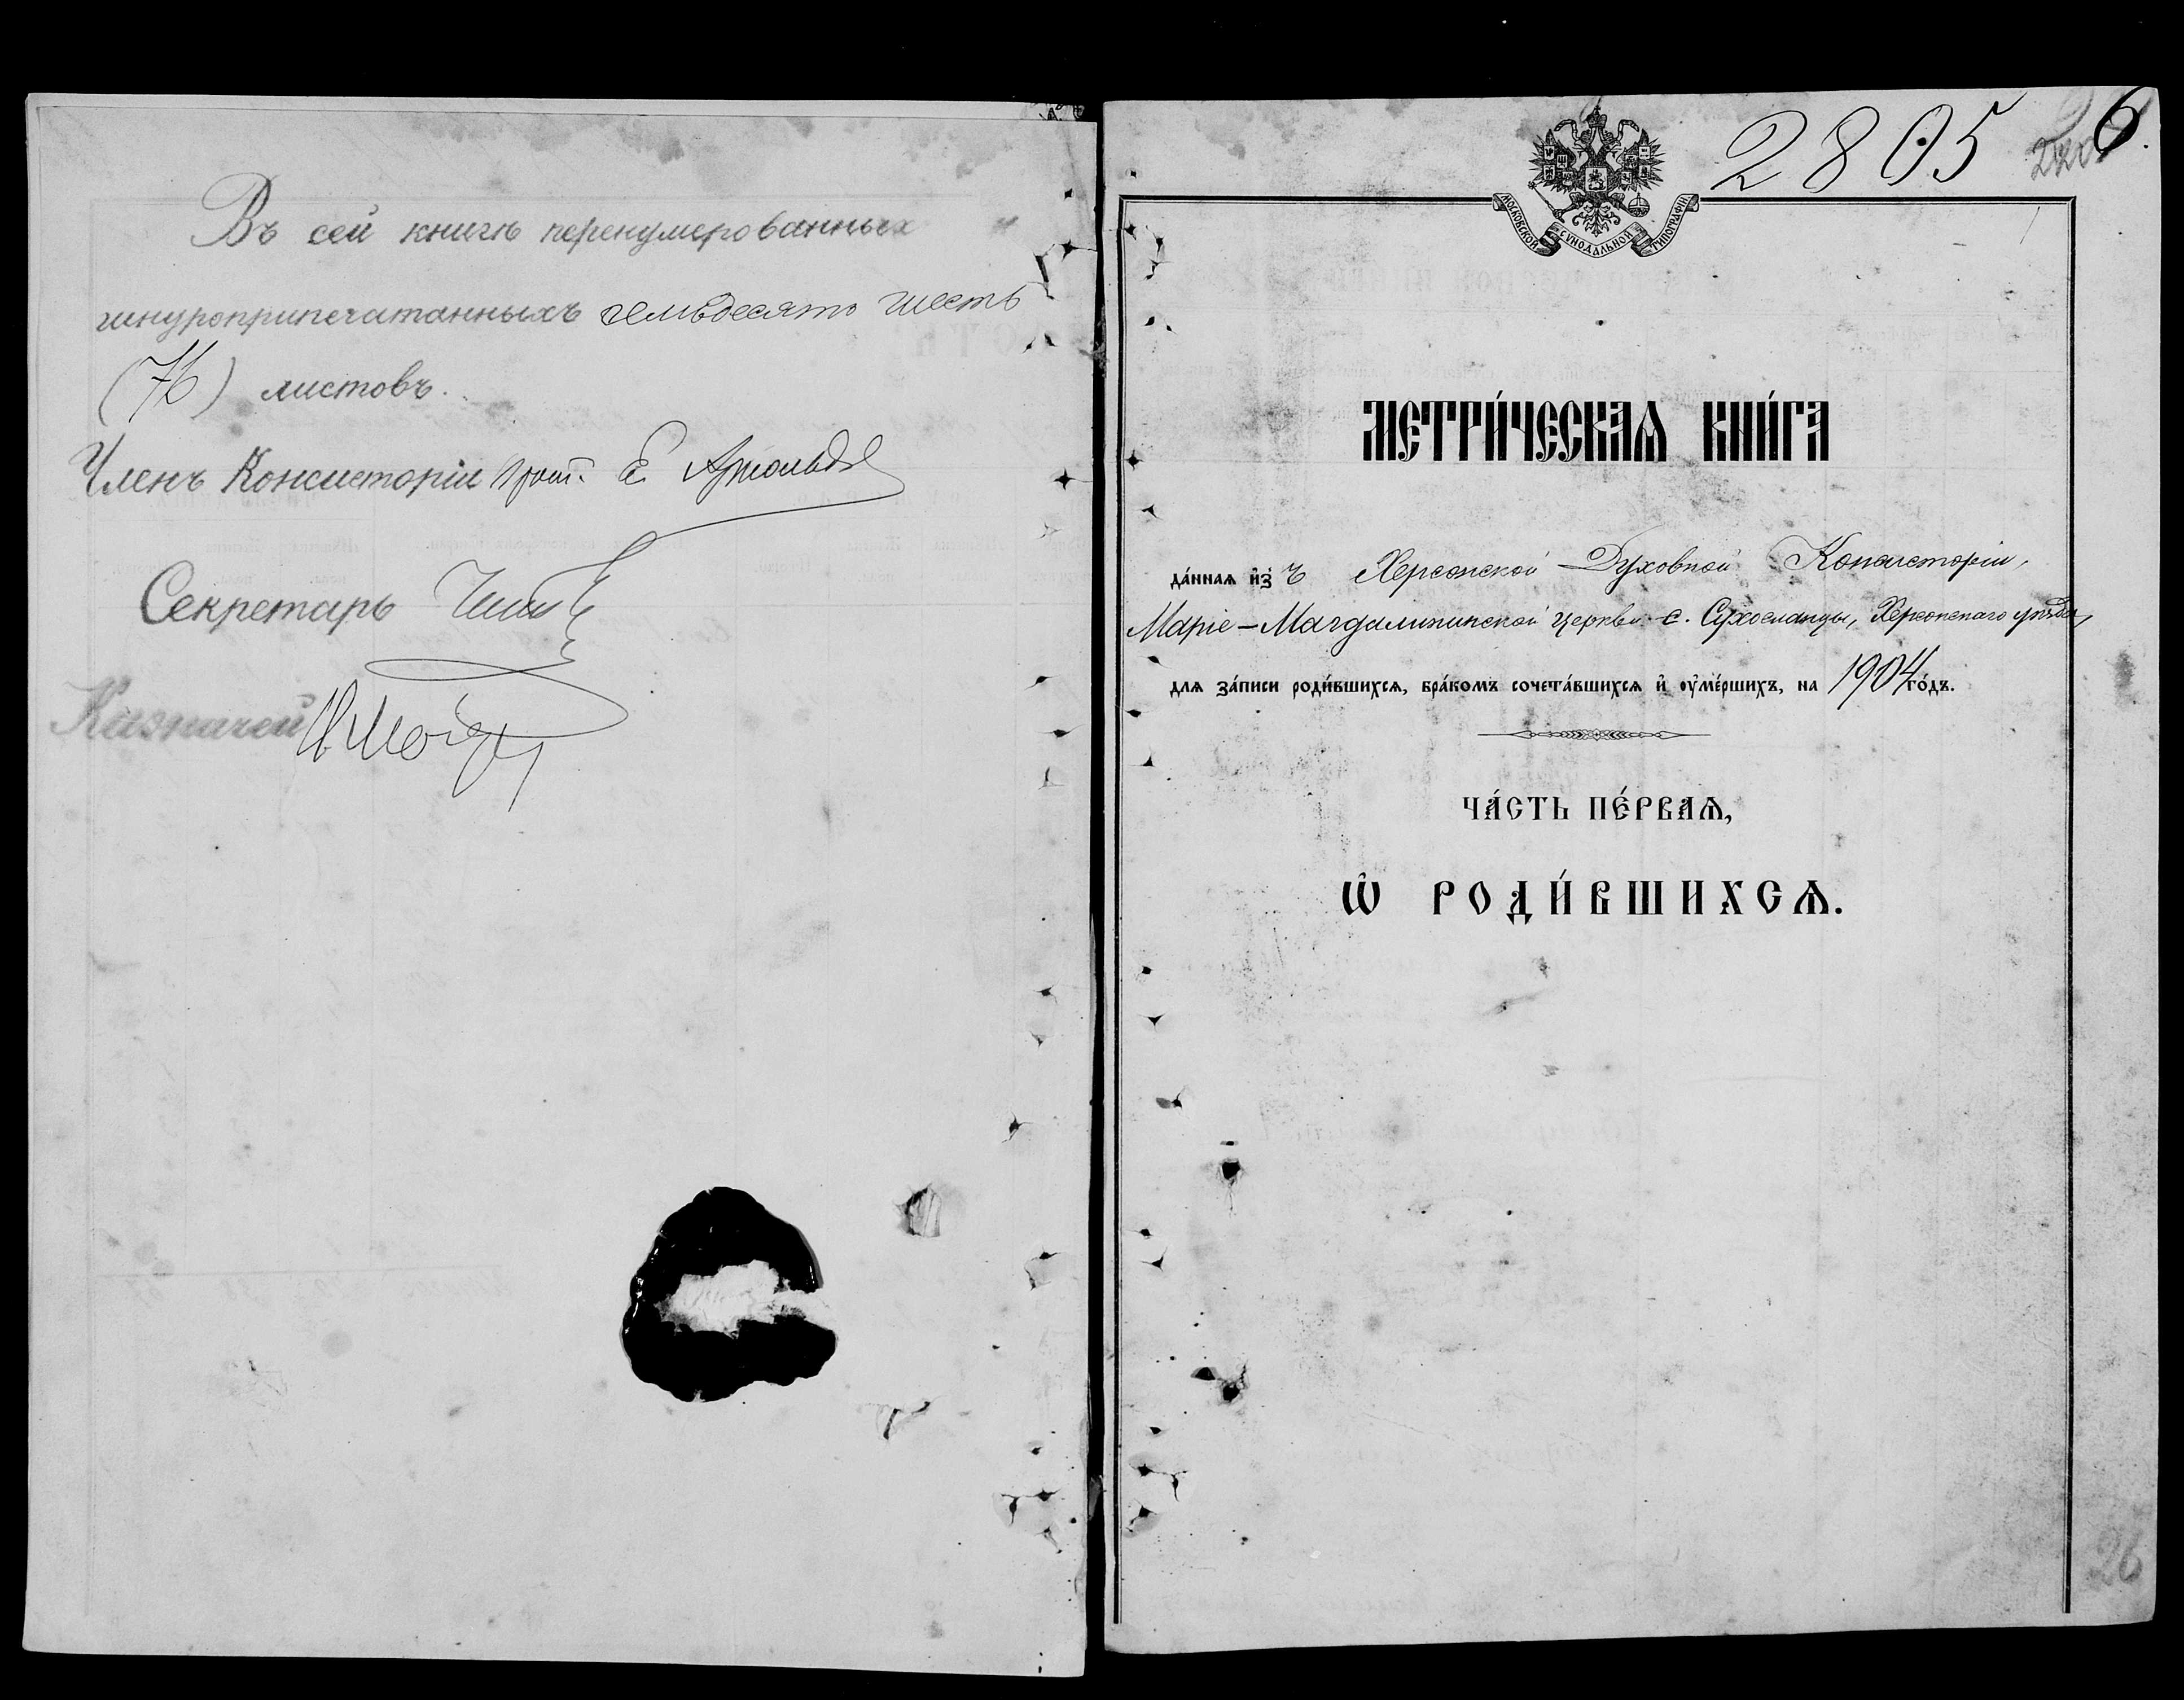 Въ сей книгѣ перенумерованныхъ и
шнуроприпечатанныхъ семьдесятъ шесть
(76) листовъ.
Членъ Консисторіи Прот. Е Арнольдъ
Секретарь
Казначей
2805
6.
МОСКОВСКОЙ СѴНОДАЛЬНОЙ ТИПОГРАФІИ
МЕТРИ́ЧЕСКАѦ КНИ́ГА
да́ннаѧ и҆зъ Херсонской Духовной Консисторіи,
Маріе-Магдалининской церкви с. Сухоеланца, Херсонскаго уѣзда,
для за́писи роди́вшихсѧ, бра́комъ сочета́вшихсѧ и҆ ᲂу҆ме́ршихъ, на 1904 го́дъ.
ЧА́СТЬ ПЕ́РВАѦ,
Ѽ РОДИ́ВШИХСѦ.
26